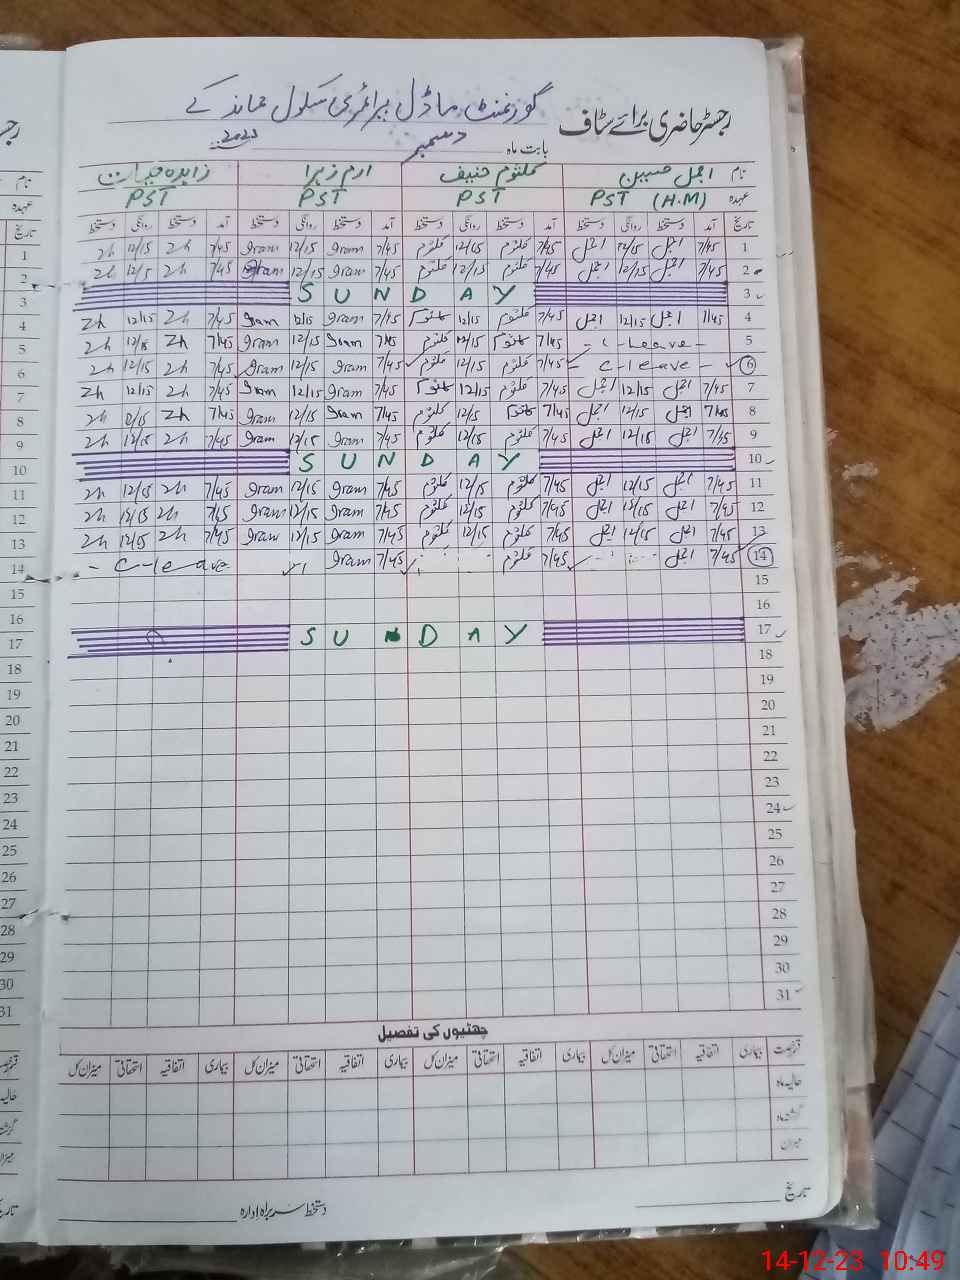 گورنمنٹ ماڈل پرائمری سکول
رجسٹر حاضری برائے سٹاف
بابت ماہ دسمبر 2023
نام اجمل حسین کلثوم حنیف ارم زہرا
عہدہ PST (H.M) PST PST PST
تاریخ آمد دستخط روانگی دستخط آمد دستخط روانگی دستخط آمد دستخط روانگی دستخط آمد دستخط روانگی دستخط
1 7/45 اجمل 12/15 اجمل 7/45 کلثوم 12/15 کلثوم 7/45 Iram 12/15 Iram 7/45 Zh 12/15 Zh
2 7/45 اجمل 12/15 اجمل 7/45 کلثوم 12/15 کلثوم 7/45 Iram 12/15 Iram 7/45 Zh 12/5 Zh
3 SUNDAY
4 7/45 اجمل 12/15 اجمل 7/45 کلثوم 12/15 کلثوم 7/15 Iram 12/15 Iram 7/45 Zh 12/15 Zh
5 - C-Leave - 7/45 کلثوم 12/15 کلثوم 7/45 Iram 12/15 Iram 7/45 Zh 12/15 Zh
6 - C-leave - 7/45 کلثوم 12/15 کلثوم 7/45 Iram 12/15 Iram 7/45 Zh 12/15 Zh
7 7/45 اجمل 12/15 اجمل 7/45 کلثوم 12/15 کلثوم 7/45 Iram 12/15 Iram 7/45 Zh 12/15 Zh
8 7/45 اجمل 12/15 اجمل 7/45 کلثوم 12/15 کلثوم 7/45 Iram 12/15 Iram 7/45 Zh Zh
9 7/45 اجمل 12/15 اجمل 7/45 کلثوم 12/15 کلثوم 7/45 Iram 12/15 Iram 7/45 Zh 12/15 Zh
10 SUNDAY
11 7/45 اجمل 12/15 اجمل 7/45 کلثوم 12/15 کلثوم 7/45 Iram 12/15 Iram 7/45 Zh 12/15 Zh
12 7/45 اجمل 12/15 اجمل 7/45 کلثوم 12/15 کلثوم 7/45 Iram 12/15 Iram 7/45 Zh 12/15 Zh
13 7/45 اجمل 12/15 اجمل 7/45 کلثوم 12/15 کلثوم 7/45 Iram 12/15 Iram 7/45 Zh 12/15 Zh
14 7/45 اجمل 7/45 کلثوم 7/45 Iram - C-leave
15
16
17 SUNDAY
18
19
20
21
22
23
24
25
26
27
28
29
30
31
چھٹیوں کی تفصیل
قسم رخصت بیماری اتفاقیہ استحقاقی میزان کل بیماری اتفاقیہ استحقاقی میزان کل بیماری اتفاقیہ استحقاقی میزان کل بیماری اتفاقیہ استحقاقی میزان کل
حالیہ ماہ
گزشتہ ماہ
میزان
تاریخ
دستخط سربراہ ادارہ
14-12-23 10:49